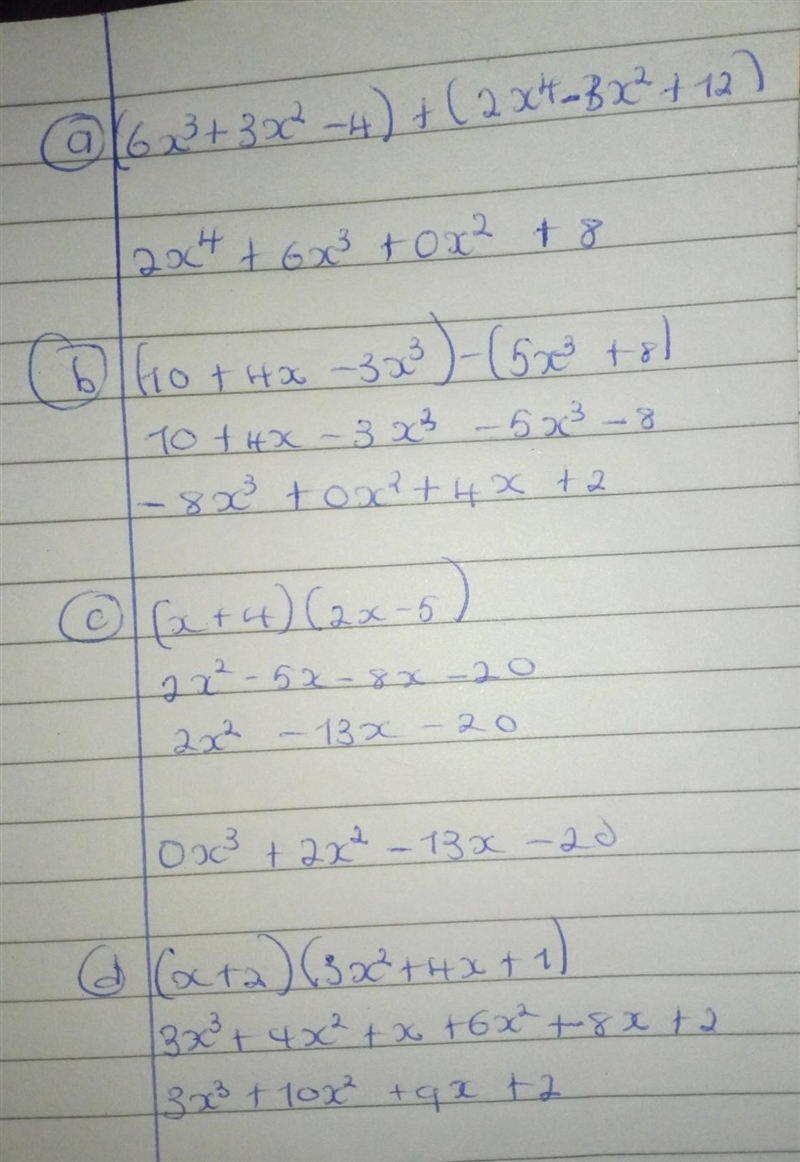 (a) (6x³ + 3x² - 4) + (2x⁴ - 3x² + 12)
2x⁴ + 6x³ + 0x² + 8
(b) (10 + 4x - 3x³) - (5x³ + 8)
10 + 4x - 3x³ - 5x³ - 8
- 8x³ + 0x² + 4x + 2
(c) (x + 4)(2x - 5)
2x² - 5x - 8x - 20
2x² - 13x - 20
0x³ + 2x² - 13x - 20
(d) (x + 2)(3x² + 4x + 1)
3x³ + 4x² + x + 6x² + 8x + 2
3x³ + 10x² + 9x + 2